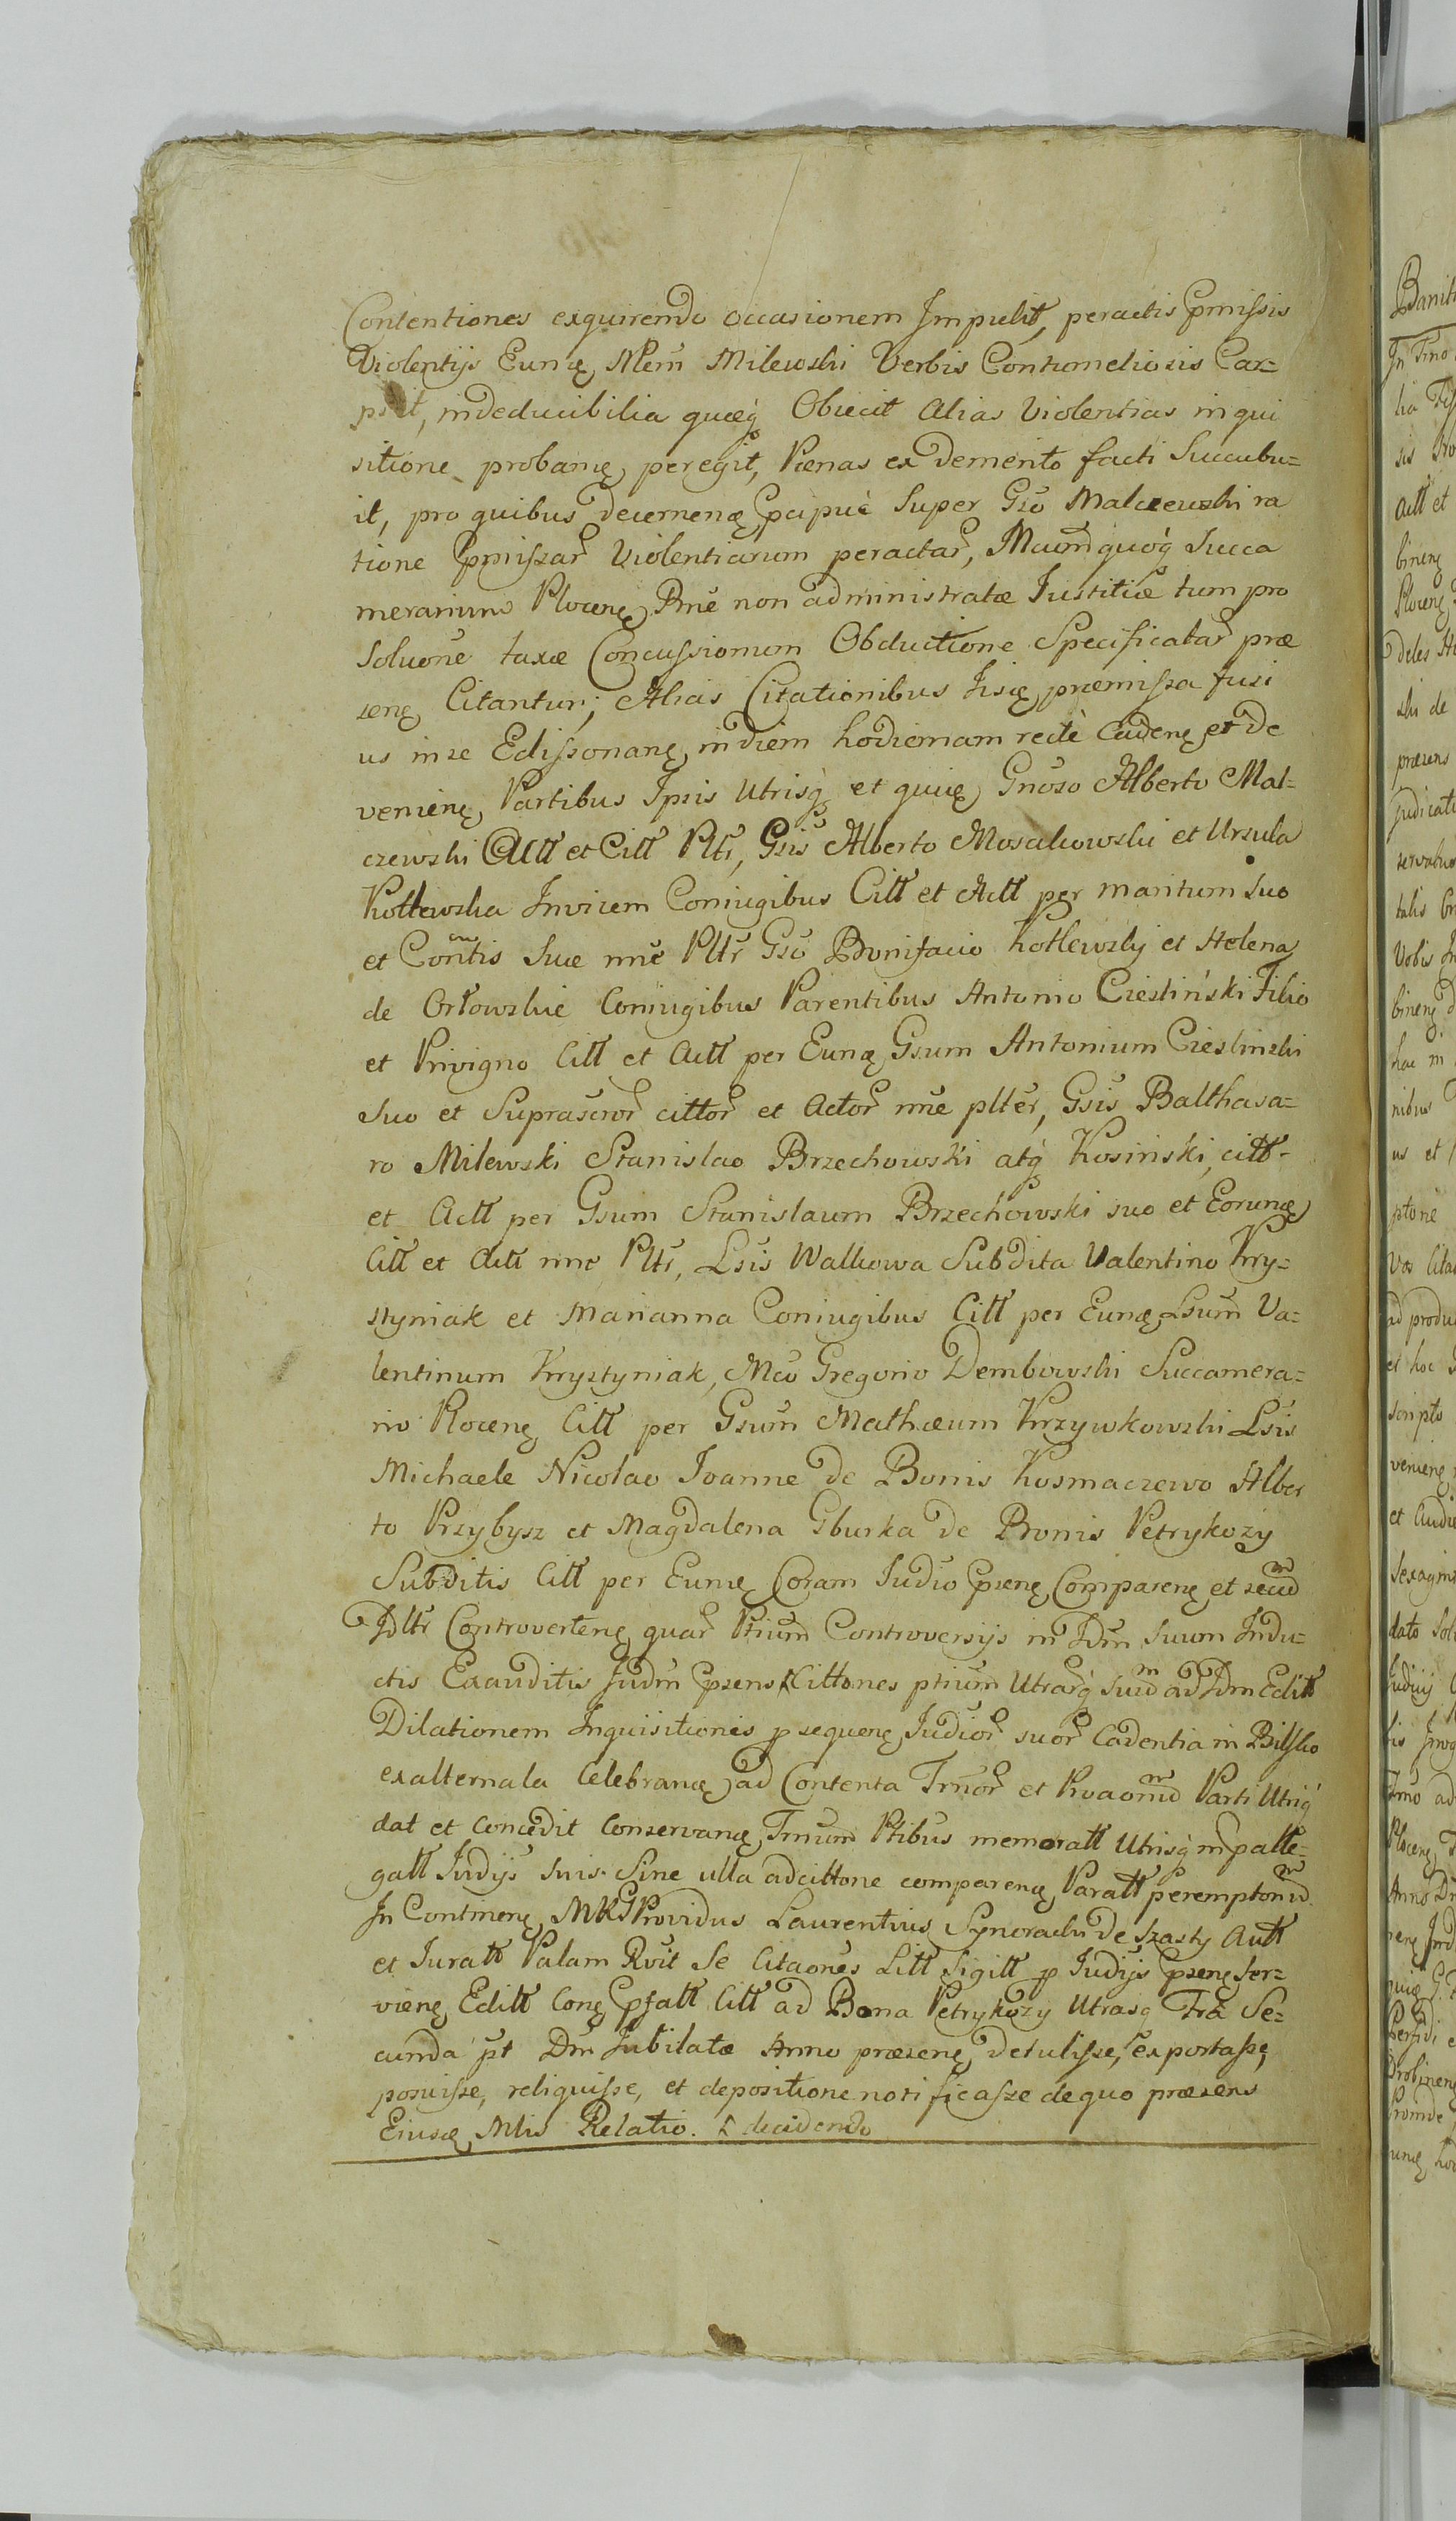 Contentiones exquirendo occasionem Impulit, peractis pmissis
Violentijs Eunq Nlem Milewski Verbis Contumeliosis Car=
psit, indeducibilia quæq Obiecit alias Violentias inqui
sitione probanq peregit, Pænas ex demerito facti Succubu=
it, pro quibus decernenq pcipuè Super Gso Malczewski ra
tione pmissar Violentiarum peractar, Mcum quoq Succa
merarium Plocenq Rne non administratæ Iustitiæ tum pro
Soluone taxæ Concussionum Obductione Specificatar præ
senq Citantur; Alias Citationibus Iisq præmissa fusi
us in se Edissonanq in diem hodiernam recte Cadenq et de
venienq Partibus Ipsis Utrisq et quiq Gnoso Alberto Mal=
czewski Actt et Citt Pltr, Gsis Alberto Mosakowski et Ursula
Kotlewska Invicem Coniugibus Citt et Actt per maritum suo
et Contis Suæ nne Pltr Gso Bonifacio Kotlewsky et Helena
de Orłowskie Coniugibus Parentibus Antonio Cieslinski Filio
et Privigno Citt et Actt per Eunq Gsum Antonium Cieslinski
Suo et Suprascror cittor et Actor nne plter, Gsis Balthasa=
ro Milewski Stanislao Brzechowski atq Kosinski, citt
et Actt per Gsum Stanislaum Brzechowski suo et Eorunq
Citt et Actt nne Pltr, Lsis Walkowa Subdita Valentino Kry=
styniak et Marianna Coniugibus Citt per Eunq Lsum Va=
lentinum Krystyniak, Mco Gregorio Dembowski Succamera=
rio Plocenq Citt per Gsum Mathæum Krzywkowski Lsis
Michaele Nicolao Ioanne de Bonis Kosmaczewo Alber
to Przybysz et Magdalena Gburka de Bonis Petrykozy
Subditis Citt per Eunq Coram Iudio psenq Comparenq et secud
Idltr Controvertenq quar Ptium Controversijs in Idm Suum Indu=
ctis Exauditis Judm psens Cittones ptium Utrasq suud ad Idm Editt
Dilationem Inquisitionis p sequenq Iudior suor Cadentia in Bilsko
exalternata Celebranq ad Contenta Tmor et Pvaomd Parti Utriq
dat et Concedit Conservanq Tmum Ptibus memoratt Utrisq in palle=
gatt Iudijs suis Sine ulla adcittone comparenq Paratt peremptorid
In Contmenq MRG Providus Laurentius Synoracki de Szasty Autt
et Iuratt Palam Rvit Se Citaones Litt Sigitt p Iudijs psenq Ser=
vienq Editt Conq psatt Citt ad Bona Petrykozy Utrasq Fra Se=
cunda pt Dm Iubilatæ Anno præsenq detulisse, exportasse,
posuisse, reliquisse, et depositione notificasse de quo præsens
Eiusq Mlis Relatio. decidendo